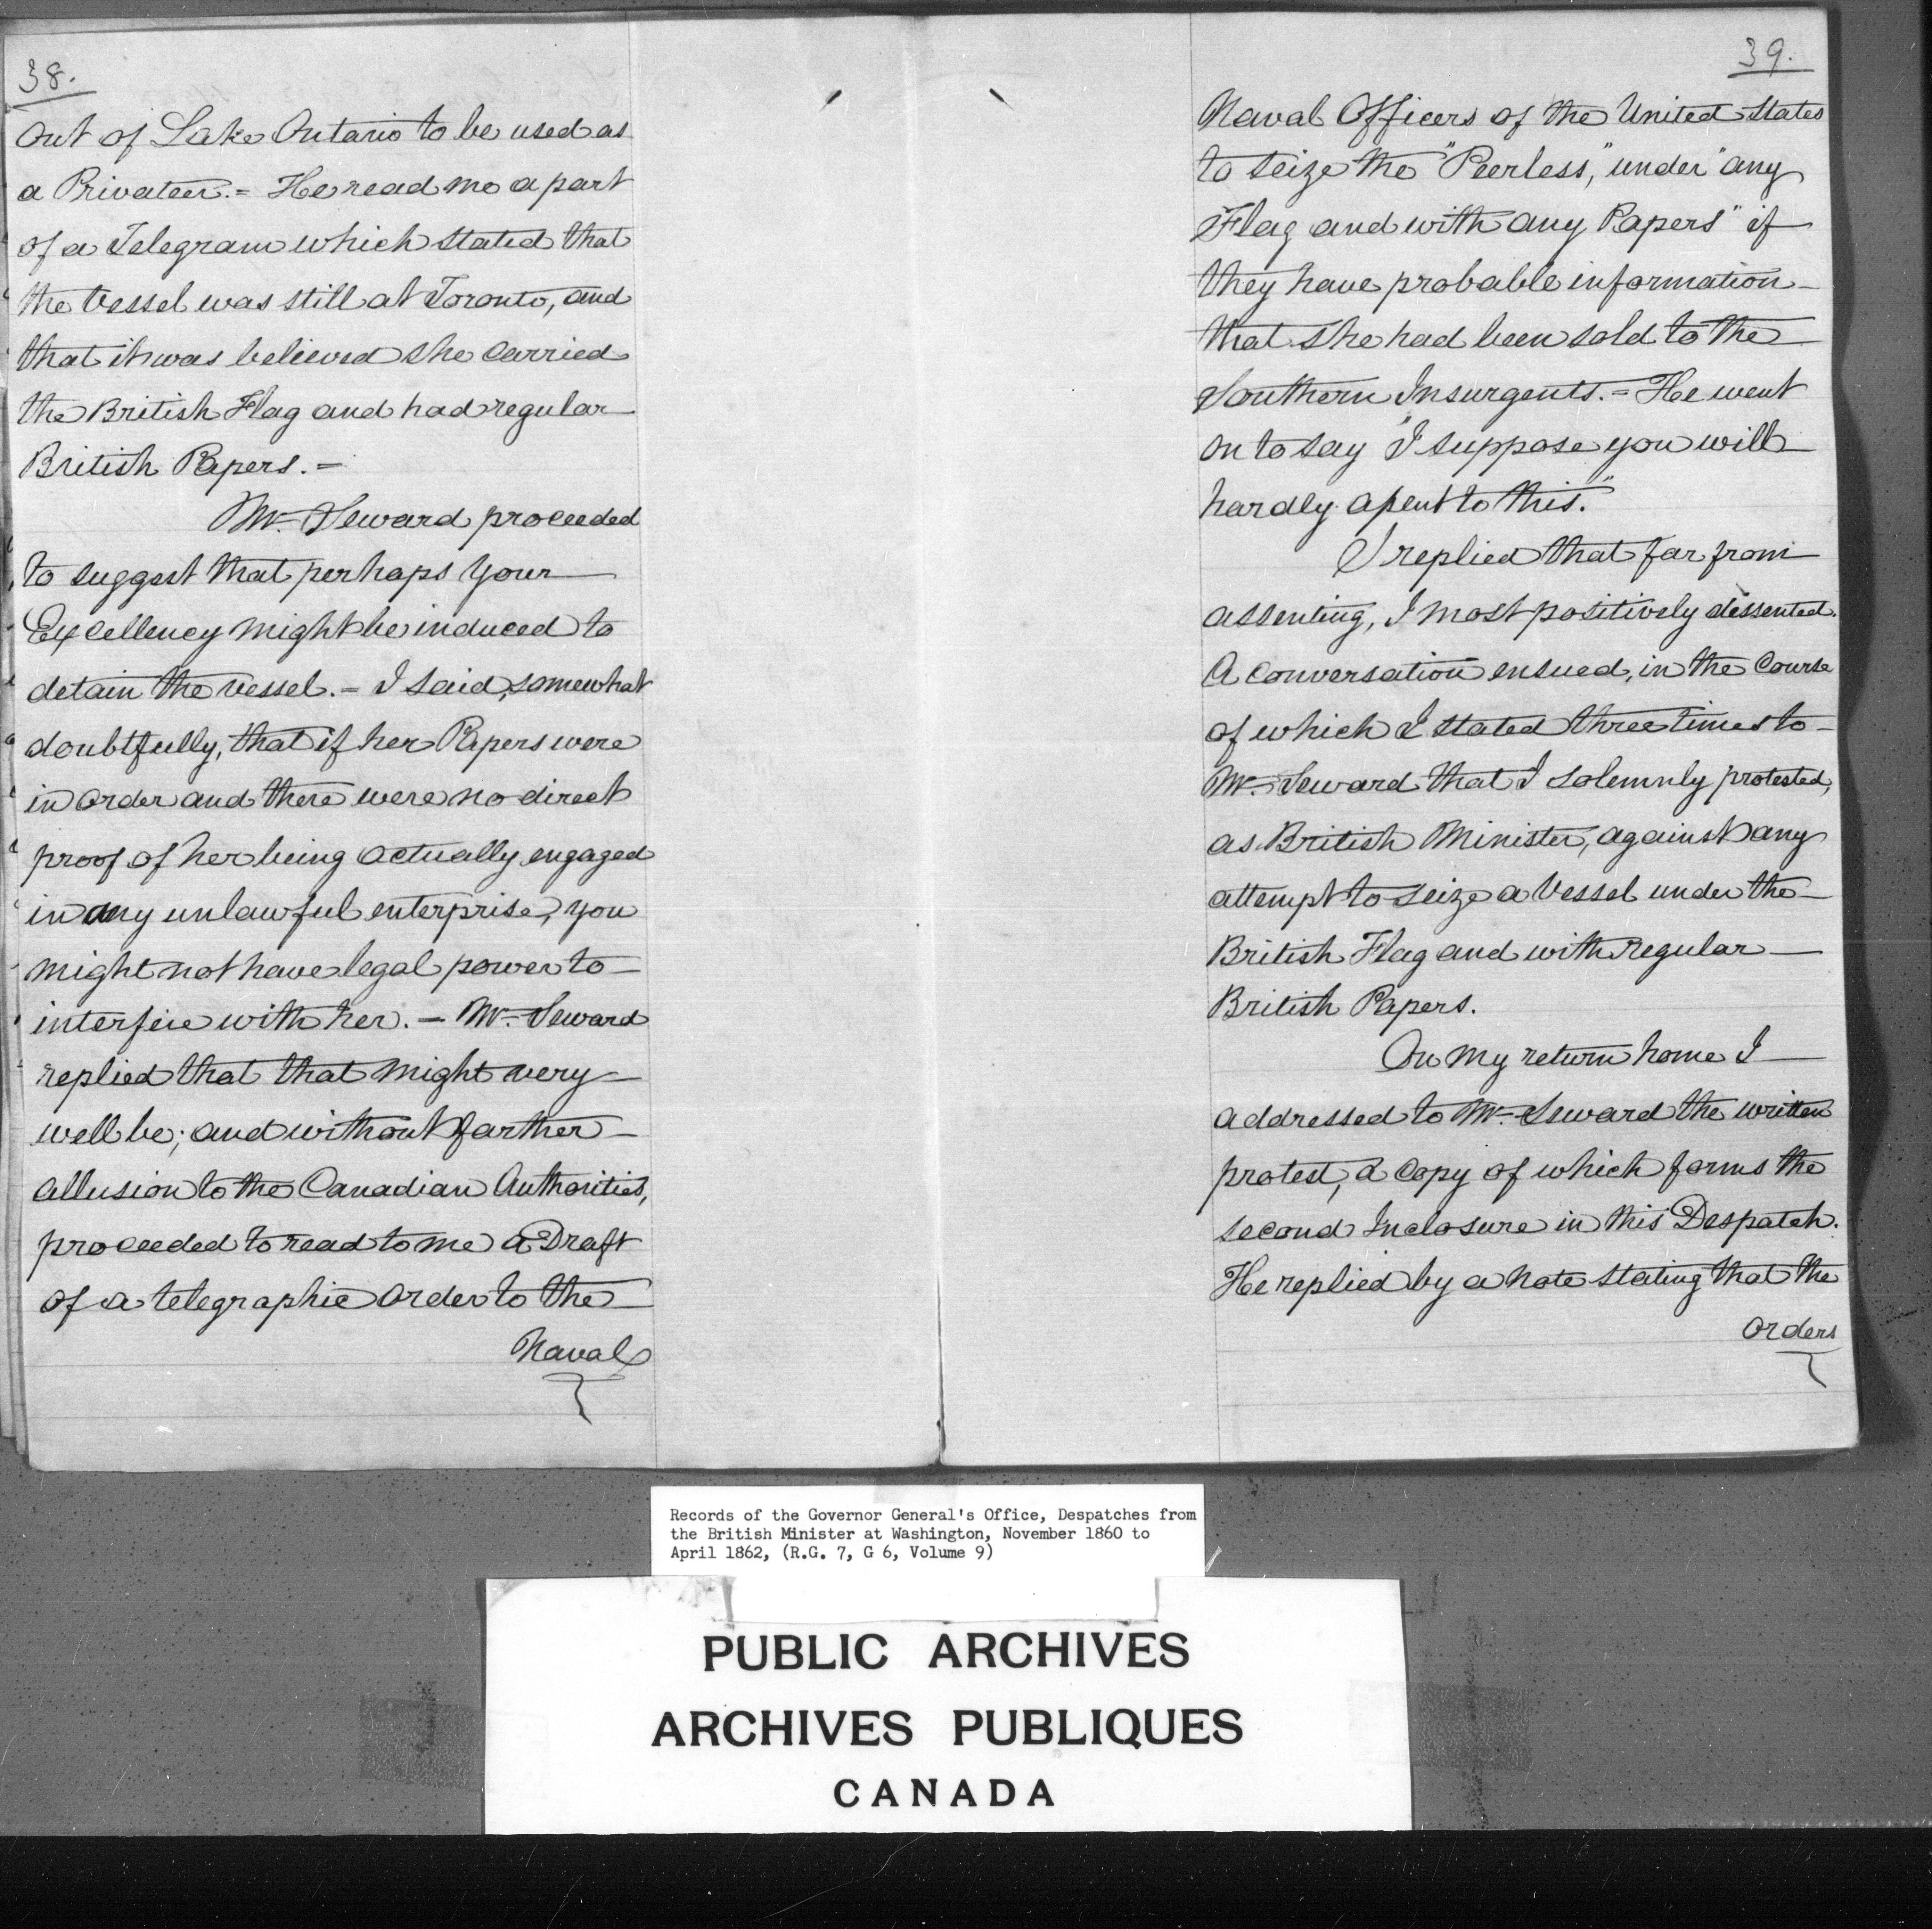 38.
out of Lake Ontario to be used as
a Privateer.= He read me a part
of a Telegram which stated that
the Vessel was still at Toronto, and
that it was believed she carried
the British Flag and had regular
British Papers.=
Mr. Seward proceeded
to suggest that perhaps Your
Excellency might be induced to
detain the vessel.= I said, somewhat
doubtfully, that if her Papers were
in order and there were no direct
proof of her being actually engaged
in any unlawful enterprise, you
might not have legal power to
interfere with her.= Mr. Seward
replied that that might very
well be; and without farther
allusion to the Canadian Authorities,
proceeded to read to me a Draft
of a telegraphic order to the
Naval
39.
Naval Officers of the United States
to seize the "Peerless," under "any
Flag and with any Papers" if
they have probable information
that she had been sold to the
Southern Insurgents.= He went
on to say "I suppose you will
hardly assent to this."
I replied that far from
assenting, I most positively dissented.
A conversation ensued, in the Course
of which I stated three times to
Mr. Seward that I solemnly protested,
as British Minister, against any
attempt to seize a Vessel under the
British Flag and with regular
British Papers.
On my return home I
addressed to Mr. Seward the written
protest, a copy of which forms the
second Inclosure in this Despatch.
He replied by a note stating that the
orders
Records of the Governor General's Office, Despatches from
the British Minister at Washington, November 1860 to
April 1862, (R.G. 7, G 6, Volume 9)
PUBLIC ARCHIVES
ARCHIVES PUBLIQUES
CANADA